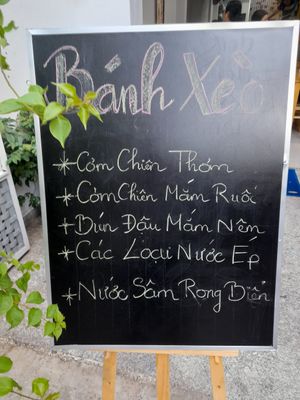 Bánh Xèo
* Cơm Chiên Thơm
* Cơm Chiên Mắm Ruốc
* Bún Đậu Mắm Nêm
* Các Loại Nước Ép
* Nước Sâm Rong Biển